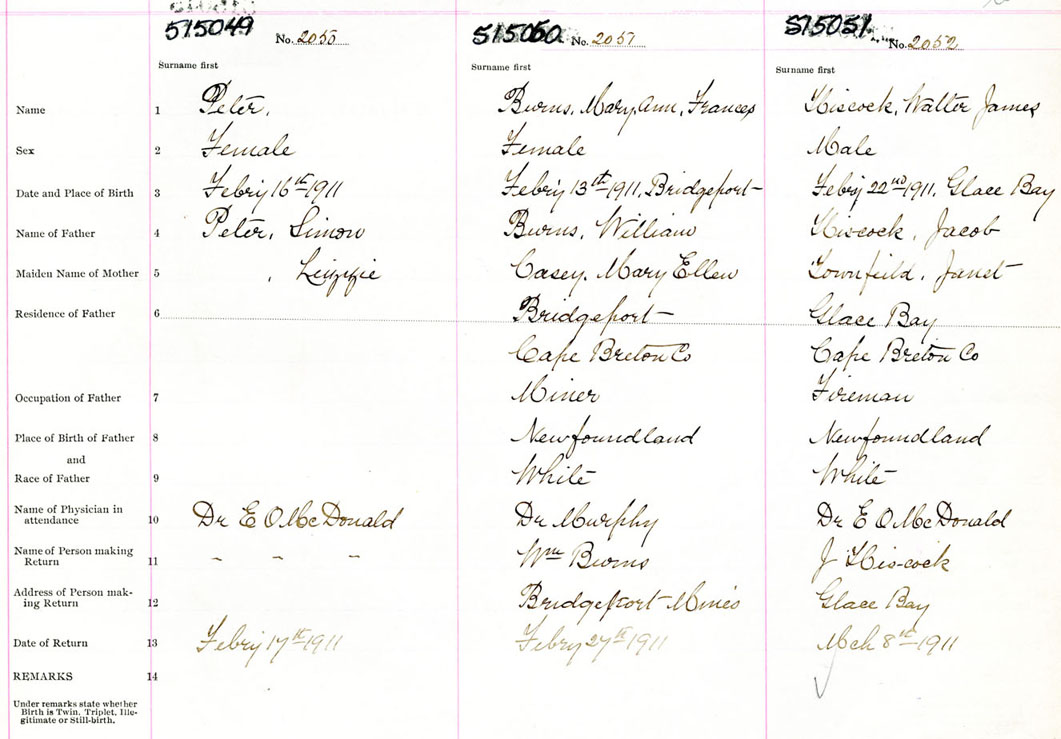 515049 No. 2055
515050 No. 2057
515051 No. 2052
Surname first Surname first Surname first
Name 1 Peter, Burns, Mary Ann, Frances Hiscock, Walter James
Sex 2 Female Female Male
Date and Place of Birth 3 Febry 16th 1911 Febry 13th 1911, Bridgeport Febry 22nd 1911, Glace Bay
Name of Father 4 Peter, Simon Burns, William Hiscock, Jacob
Maiden Name of Mother 5 , Lizzie Casey, Mary Ellen Townfeild, Janet
Residence of Father 6 Bridgeport Glace Bay
Cape Breton Co Cape Breton Co
Occupation of Father 7 Miner Fireman
Place of Birth of Father 8 Newfoundland Newfoundland
and
Race of Father 9 White White
Name of Physician in
attendance 10 Dr E O McDonald Dr Murphy Dr E O McDonald
Name of Person making
Return 11 - - - Wm Burns J Hiscock
Address of Person mak-
ing Return 12 Bridgeport Mines Glace Bay
Date of Return 13 Febry 17th 1911 Febry 27th 1911 Mch 8th 1911
REMARKS 14
Under remarks state whether
Birth is Twin, Triplet, Ille-
gitimate or Still-birth.